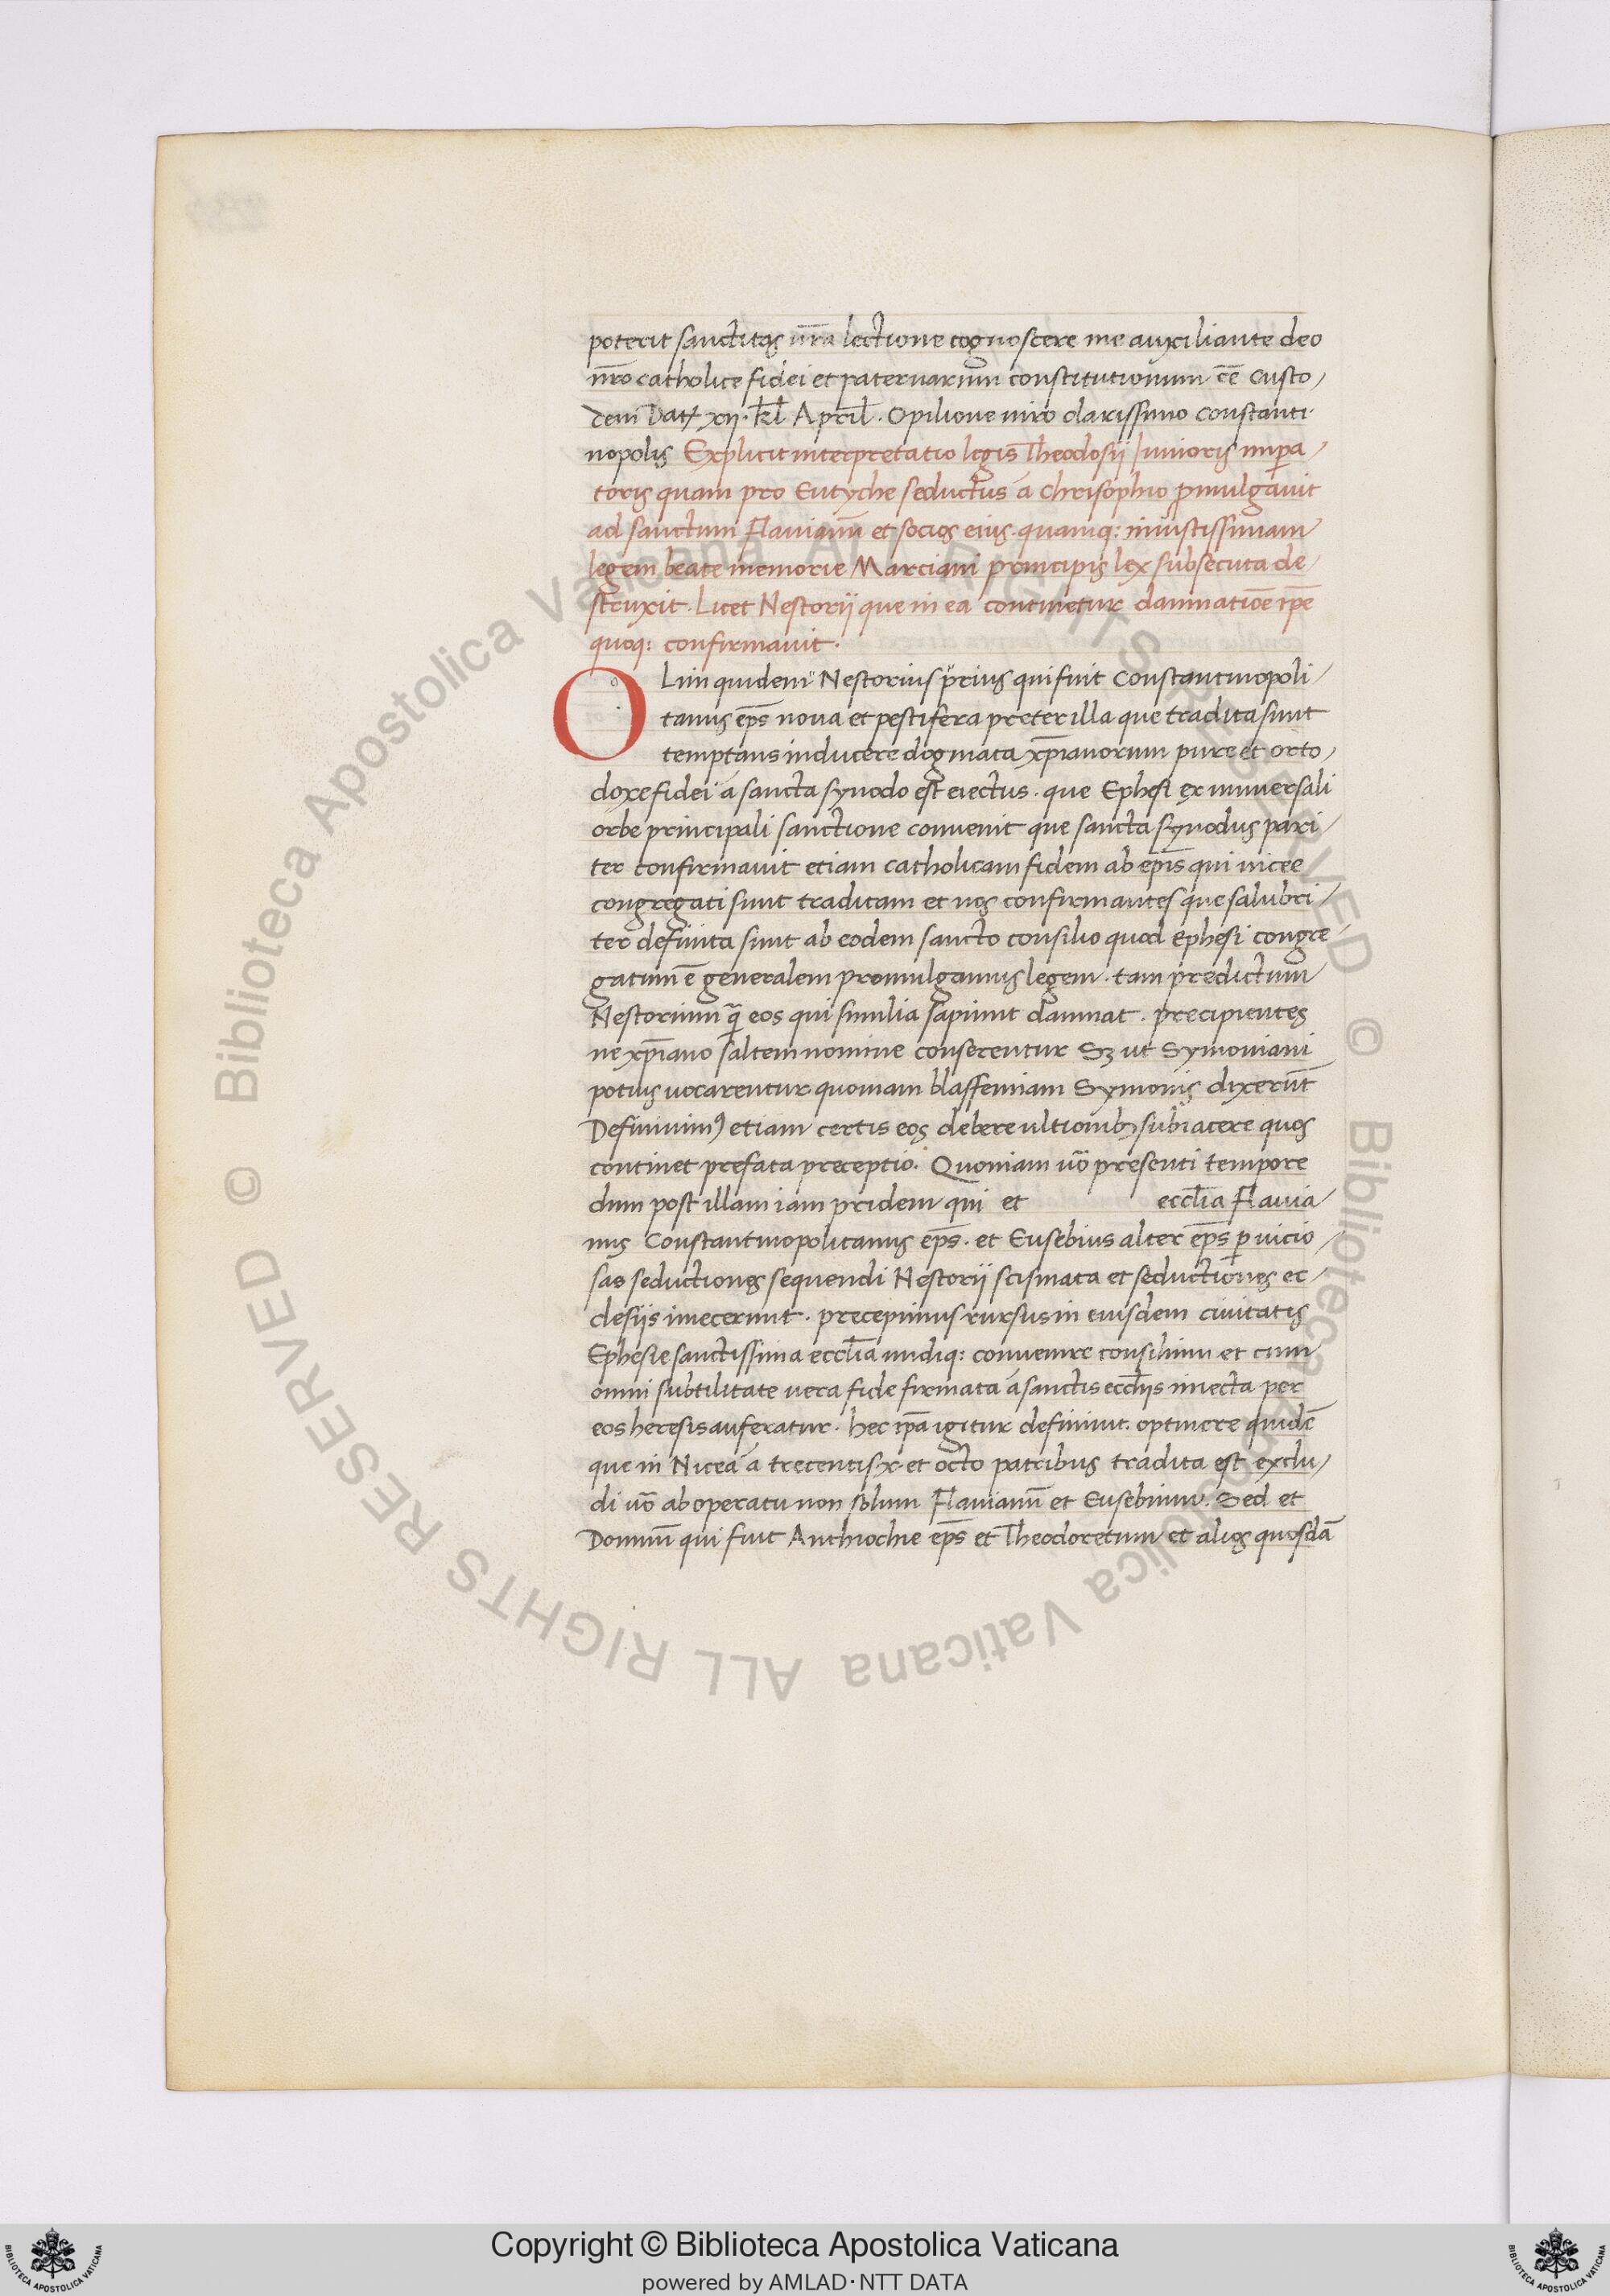 poterit sanctitas ūr̄a lectione cognoscere me auxiliante deo
nr̄o catholice fidei et paternarum constitutionum cē̄ custo,
dem Dat xii. kl April. Opilione niro clarissimo Constanti.
nopolis Explicit interpretatio legis Theodosij Iunioris imp̱a,
toris quam pro Eutyche seductus a Chrisophio p̱mulgauit
ad sanctum Flauianū et socios eius. quamq: iniustissimam
legem beate memorie Marciani principis lex subsecuta de
struxit. Licet Nestorij que in ea continetur damnatiōe ip̄e
quoq: confirmauit.
OLim quidem Nestorius prius qui fuit Constantinopoli,
tanus ep̄s noua et pestifera preter illa que tradita sunt
temptans inducere dogmata xp̄ianorum pure et orto,
doxe fidei a sancta synodo est eiectus. que Ephesi ex uniuersali
orbe principali sanctione conuenit que sancta synodus pari,
ter confirmauit etiam catholicam fidem ab ep̄is qui nicee
congregati sunt traditam et nos confirmantes que salubri,
ter definita sunt ab eodem sancto consilio quod Ephesi congre
gatum ē generalem promulgamus legem. tam predictum
Nestorium q̄ eos qui similia sapiunt damnat. precipientes
ne xp̄iano saltem nomine conserentur Sꝫ ut Symoniani
potius uocarentur quoniam blasfemiam Symonis dixerūt
Definiuimꝰ etiam certis eos debere ultionibꝫ subiacere quos
continet prefata preceptio. Quoniam uō presenti tempore
dum post illam iam pridem qui et eccl̄ia Flauia,
nus Constantinopolitanus ep̄s. et Eusebius alter ep̄s p̱ uicio,
sas seductiones sequendi Nestorij scismata et seductiones ec,
clesiis iniecerunt. precepimus rursus in eiusdem ciuitatis
Ephesie sanctissima eccl̄ia undiq: conuenire consilium et cum
omni subtilitate uera fide firmata a sanctis eccl̄iis iniecta per
eos heresis auferatur. hec ip̄a igitur definiuit. optinere quidē
que in Nicea a trecentis x. et octo patribus tradita est exclu,
di uō ab operatu non solum Flauianū et Eusebium. Sed et
Domnū qui fuit Anthiochie ep̄s et Theodoretum et alios quosdā
© Biblioteca Apostolica Vaticana ALL RIGHTS RESERVED © Biblioteca Apostolica Vaticana ALL RIGHTS RESERVED
Copyright © Biblioteca Apostolica Vaticana
powered by AMLAD·NTT DATA
BIBLIOTECA APOSTOLICA VATICANA
BIBLIOTECA APOSTOLICA VATICANA